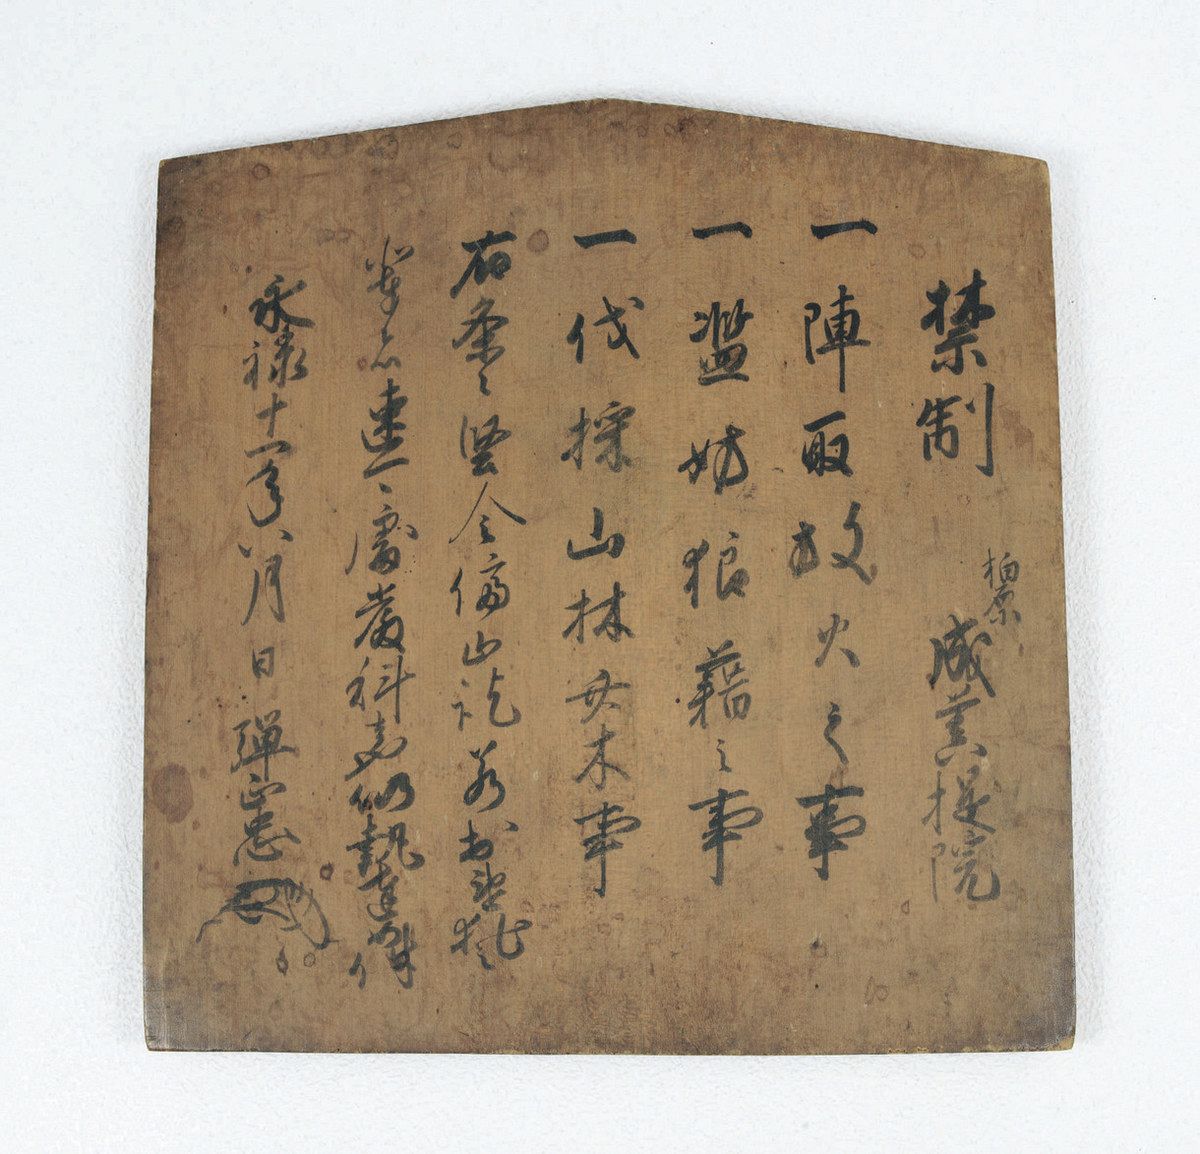 禁制 柏原 成菩提院
一陣取放火之事
一濫妨狼藉之事
一伐採山林竹木事
右条々堅令停止訖若於違犯之
輩者速可處厳科者也仍執達如件
永禄十一年八月日 弾正忠